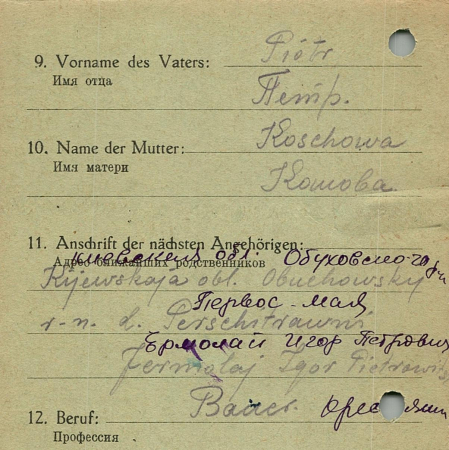 9. Vorname des Vaters: Piótr
Имя отца Петр.
10. Name der Mutter: Koschowa
Имя матери Комова
11. Anschrift der nächsten Angehörigen:
Адрес ближайших родственников Киевская обл. Обуховский
Kijewskaja obl. Obuchowsky
Первос-мая
r-n. d.
Ермолай Игор Петрович
Jermolaj Igor Pietrowitsch
12. Beruf: Bauer.
Профессия